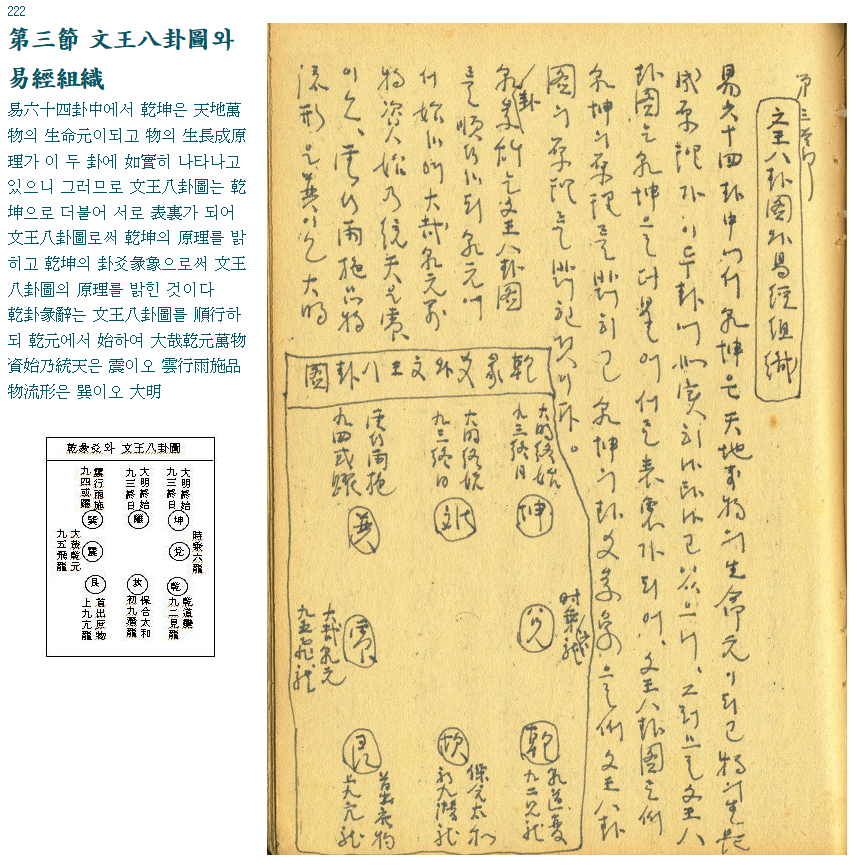 222
第三節 文王八卦圖와
易經組織
易六十四卦中에서 乾坤은 天地萬
物의 生命元이되고 物의 生長成原
理가 이 두 卦에 如實히 나타나고
있으니 그러므로 文王八卦圖는 乾
坤으로 더불어 서로 表裏가 되어
文王八卦圖로써 乾坤의 原理를 밝
히고 乾坤의 卦爻彖象으로써 文王
八卦圖의 原理를 밝힌 것이다
乾卦彖辭는 文王八卦圖를 順行하
되 乾元에서 始하여 大哉乾元萬物
資始乃統天은 震이오 雲行雨施品
物流形은 巽이오 大明
乾彖爻와 文王八卦圖
大明終始
九三終日
坤
大明終始
九三終日
離
雲行雨施
九四或躍
巽
時乘六龍
兌
震
大哉乾元
九五飛龍
乾
乾道變
九二見龍
坎
保合太和
初九潛龍
艮
首出庶物
上九亢龍
第三節
文王八卦圖와易經組織
易六十四卦中에서 乾坤은 天地萬物의 生命元이되고 物의 生長
成原理가 이두卦에 如實히 나타나고 있으니, 그러므로 文王八
卦圖는 乾坤으로 더불어 서로 表裏가 되어, 文王八卦圖로써
乾坤의 原理를 밝히고 乾坤의 卦爻彖象으로써 文王八卦
圖의 原理를 밝힌것이다。
乾卦彖辭는 文王八卦圖
를 順行하되 乾元에
서 始하여 大哉乾元萬
物資始乃統天은 震
이오, 雲行雨施品物
流形은 巽이오 大明
乾彖爻와文王八卦圖
大明終始
九三終日
坤
大明終始
九三終日
離
雲行雨施
九四或躍
巽
時乘六龍
兌
震
大哉乾元
九五飛龍
乾
乾道變
九二見龍
坎
保合太和
初九潛龍
艮
首出庶物
上九亢龍